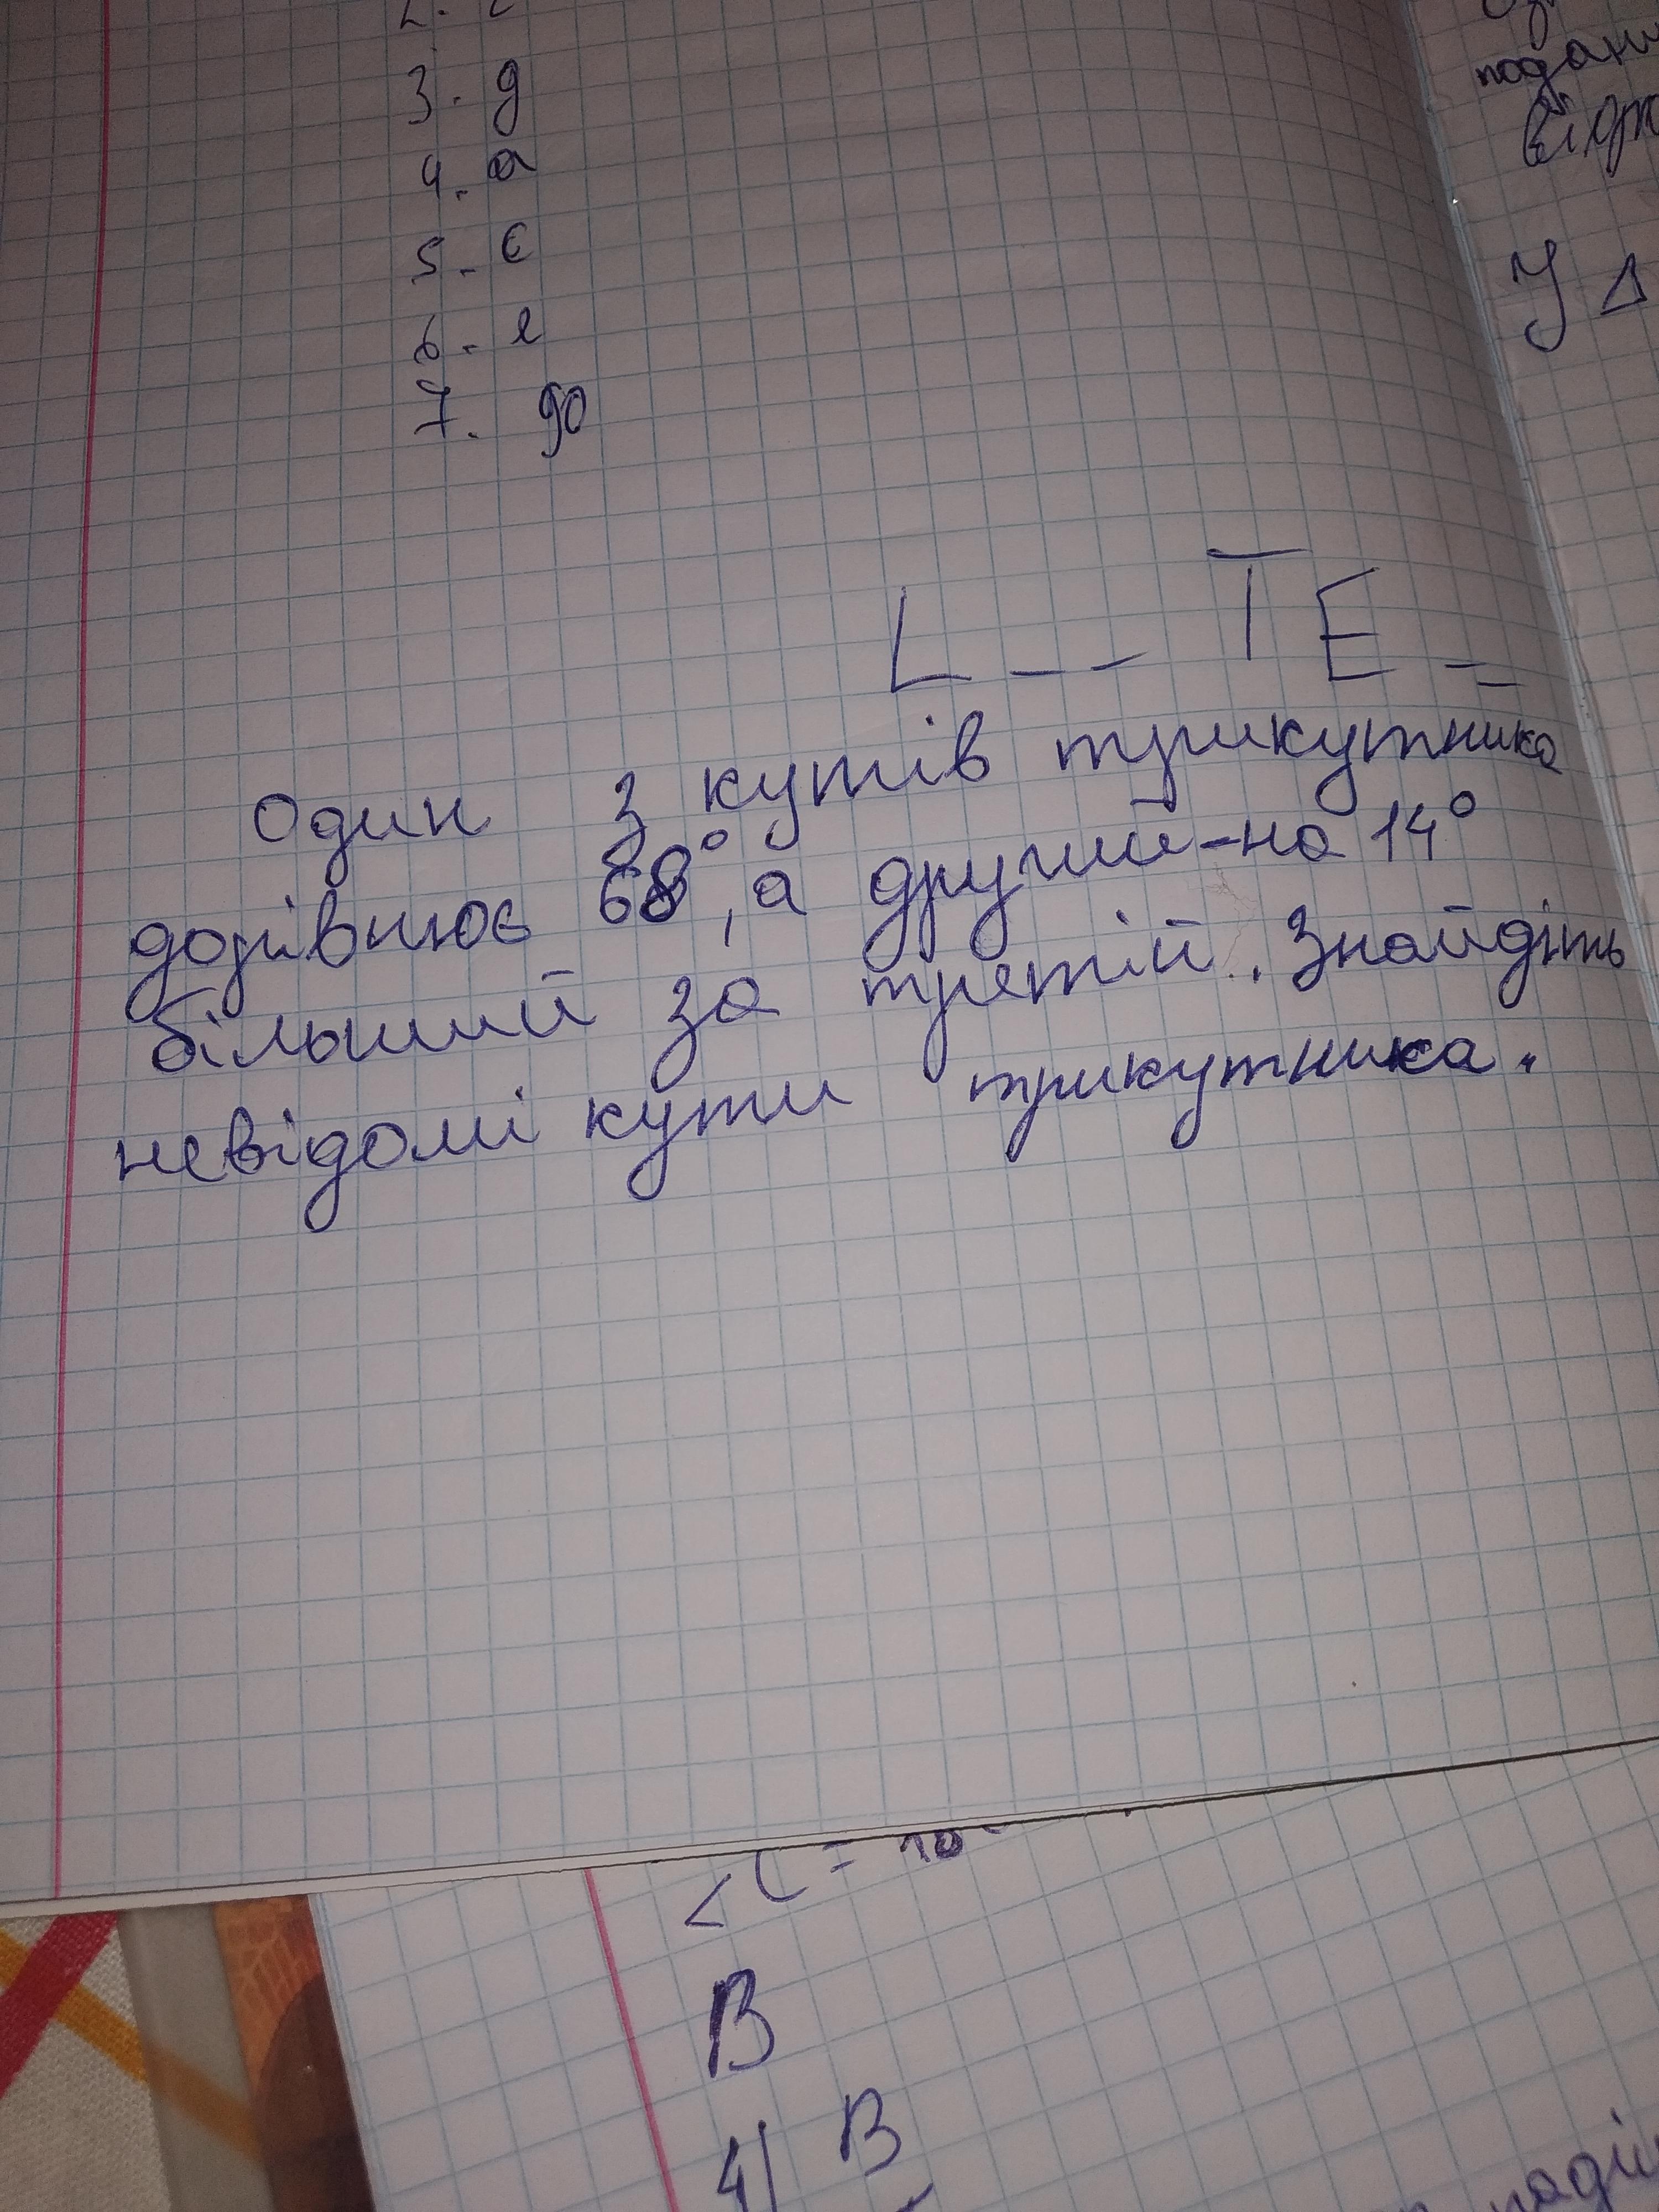 3. д
4. а
5. є
6. е
7. 90
L _ _ T E _ _
Один з кутів трикутника
дорівнює 68°, а другий-на 14°
більший за третій. Знайдіть
невідомі кути трикутника.
У Δ
<C = 10
В
4) В